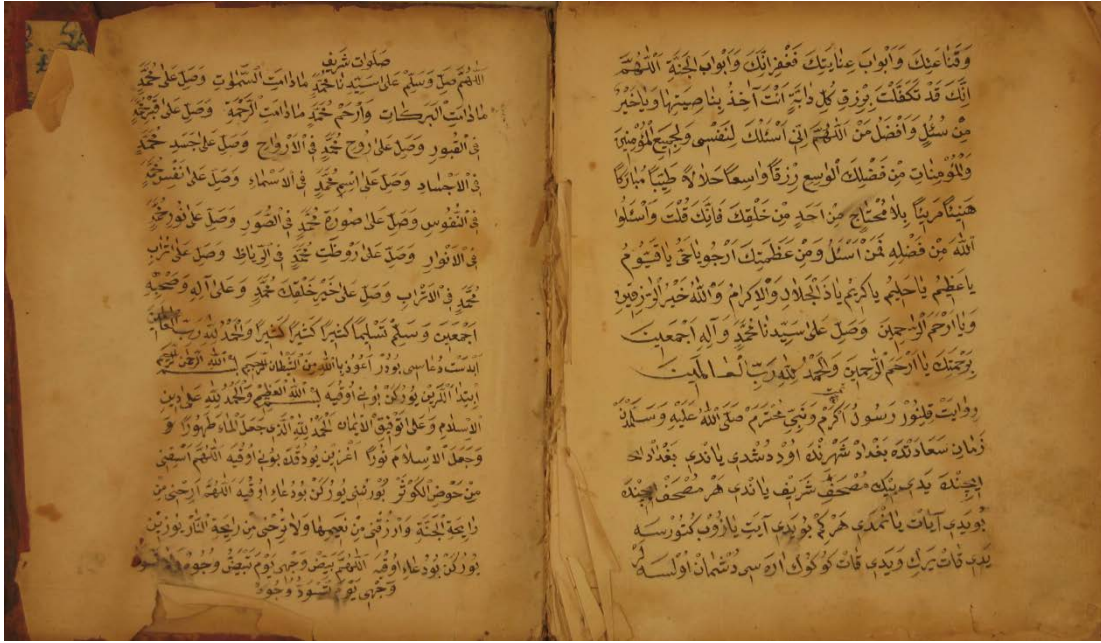 وَقَنَاعَتِكَ وَاَبْوَابَ عِنَايَتِكَ فَغُفْرَانَكَ وَاَبْوَابَ الْجَنَّةِ اَللّٰهُمَّ
اِنَّكَ قَدْ تَكَفَّلْتَ بِرِزْقِ كُلِّ دَابَّةٍ اَنْتَ آخِذٌ بِنَاصِيَتِهَا وَيَاخَيْرَ
مَنْ سُئِلَ وَاَفْضَلُ مَنْ اَللّٰهُمَّ اِنّى اَسْئَلُكَ لِنَفْسى وَلِجَميعِ الْمُؤْمِنينَ
وَالْمُؤْمِنَاتِ مِنْ فَضْلِكَ الْوَاسِعِ رِزْقًا وَاسِعًا حَلَالًا طَيِّبًا مُبَارَكًا
هَنيئًا مَريئًا بِلَا مُحْتَاجٍ مِنْ اَحَدٍ مِنْ خَلْقِكَ فَاِنَّكَ قُلْتَ وَاسْئَلُوا
اللّٰهَ مِنْ فَضْلِهِ فَمَنْ اَسْئَلُ وَمِنْ عَظَمَتِكَ اَرْجُو يَاحَىُّ يَاقَيُّومُ
يَاعَظيمُ يَاحَليمُ يَاكَريمُ يَاذَ الْجَلَالِ وَالْاِكْرَامِ وَاللّٰهُ خَيْرُ الرَّازِقينَ
وَيَا اَرْحَمَ الرَّاحِمينَ وَصَلِّ عَلٰى سَيِّدِنَا مُحَمَّدٍ وَآلِهِ اَجْمَعينَ
بِرَحْمَتِكَ يَا اَرْحَمَ الرَّاحِمينَ وَالْحَمْدُ لِلّٰهِ رَبِّ الْعَالَمينَ
رِوَايَتْ قِلِنُورْ رَسُولُ اَكْرَمْ وَنَبِىِّ مُحْتَرَمْ صَلَّى اللّٰهُ عَلَيْهِ وَسَلَّمْ
زَمَانِ سَعَادَتِنْدَه بَغْدَادْ شَهْرِنْدَه اَوْدْ دُشْدى يَانْدى بَغْدَادْ
اِيچِنْدَه يَدى بِيْكْ مُصْحَفْ شَريفْ يَانْدى هَرْ مُصْحَفْ اِچِنْدَه
بُو يَدى آيَاتْ يَانْمَدى هَرْ كِمْ بُو يَدى آيَتْ يَازُوبْ كُتُورْسَه
يَدى قَاتْ يَرِكْ وَيَدى قَاتْ كُوكُوكْ اَرَه سى دُشْمَانْ اَوُلْسَه
صلوات شريف
اَللّٰهُمَّ صَلِّ وَسَلِّمْ عَلٰى سَيِّدِنَا مُحَمَّدٍ مَادَامَتِ السَّمٰوٰتِ وَصَلِّ عَلٰى مُحَمَّدٍ
مَادَامَتِ الْبَرَكَاتِ وَارْحَمْ مُحَمَّدٍ مَادَامَتِ الرَّحْمَةِ وَصَلِّ عَلٰى قَبْرِ مُحَمَّدٍ
فِى الْقُبُورِ وَصَلِّ عَلٰى رُوحِ مُحَمَّدٍ فِى الْاَرْوَاحِ وَصَلِّ عَلٰى جَسَدِ مُحَمَّدٍ
فِى الْاَجْسَادِ وَصَلِّ عَلٰى اِسْمِ مُحَمَّدٍ فِى الْاَسْمَاءِ وَصَلِّ عَلٰى نَفْسِ مُحَمَّدٍ
فِى النُّفُوسِ وَصَلِّ عَلٰى صُورَةِ مُحَمَّدٍ فِى الصُّوَرِ وَصَلِّ عَلٰى نُورِ مُحَمَّدٍ
فِى الْاَنْوَارِ وَصَلِّ عَلٰى رَوْظَتِ مُحَمَّدٍ فِى الرِّيَاظِ وَصَلِّ عَلٰى تُرَابِ
مُحَمَّدٍ فِى الْاَتْرَابِ وَصَلِّ عَلٰى خَيْرِ خَلْقِكَ مُحَمَّدٍ وَعَلٰى آلِهِ وَصَحْبِهِ
اَجْمَعينَ وَسَلِّمْ تَسْليمًا كَثيرًا كَثيرًا كَثيرًا وَالْحَمْدُ لِلّٰهِ رَبِّ الْعَالَمينَ
آبْدَسْتْ دُعَاسى بُودُرْ اَعُوذُ بِاللّٰهِ مِنَ الشَّيْطَانِ الرَّجيمِ بِسْمِ اللّٰهِ الرَّحْمٰنِ الرَّحيمِ
اِبْتِدَا اَللَّرينْ يُورْكَنْ بُونى اُوقِيَه بِسْمِ اللّٰهِ الْعَظيمِ وَالْحَمْدُ لِلّٰهِ عَلٰى دينِ
الْاِسْلَامِ وَعَلٰى تَوْفيقِ الْايمَانِ اَلْحَمْدُ لِلّٰهِ الَّذى جَعَلَ الْمَاءَ طَهُورًا وَ
وَجَعَلَ الْاِسْلَامَ نُورًا آغْزينْ يُودُقْدَه بُونى اُوقِيَه اَللّٰهُمَّ اَسْقِنى
مِنْ حَوْضِ الْكَوْثَرْ بُورْنِنى يُورْكَنْ بُو دُعَاءِ اُوقِيَه اَللّٰهُمَّ اَرِحْنى مِنْ
رَايِحَةِ الْجَنَّةِ وَارْزُقْنى مِنْ نَعيمِهَا وَلَا تُرِحْنى مِنْ رَايِحَةِ النَّارِ يُوزينْ
يُورْكَنْ بُو دُعَاءِ اُوقِيَه اَللّٰهُمَّ بَيِّضْ وَجْهى يَوْمَ تَبْيَضُّ وُجُوهٌ وَلَا تُسَوِّدْ
وَجْهى يَوْمَ تَسْوَدُّ وُجُوهٌ